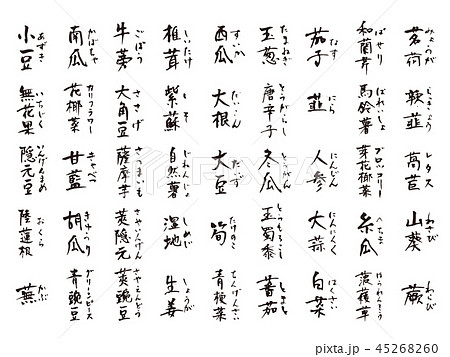 茗荷
みょうが
辣韮
らっきょう
萵苣
レタス
山葵
わさび
蕨
わらび
和蘭芹
ぱせり
馬鈴薯
ばれいしょ
芽花椰菜
ブロッコリー
糸瓜
へちま
菠薐草
ほうれんそう
茄子
なす
韮
にら
人参
にんじん
大蒜
にんにく
白菜
はくさい
玉葱
たまねぎ
唐辛子
とうがらし
冬瓜
とうがん
玉蜀黍
とうもろこし
蕃茄
とまと
西瓜
すいか
大根
だいこん
大豆
だいず
筍
たけのこ
青梗菜
ちんげんさい
椎茸
しいたけ
紫蘇
しそ
自然薯
じねんじょ
湿地
しめじ
生姜
しょうが
牛蒡
ごぼう
大角豆
ささげ
薩摩芋
さつまいも
莢隠元
さやいんげん
莢豌豆
さやえんどう
南瓜
かぼちゃ
花椰菜
カリフラワー
甘藍
きゃべつ
胡瓜
きゅうり
青豌豆
グリーンピース
小豆
あずき
無花果
いちじく
隠元豆
いんげんまめ
陸蓮根
おくら
蕪
かぶ
pixta.jp - 45268260